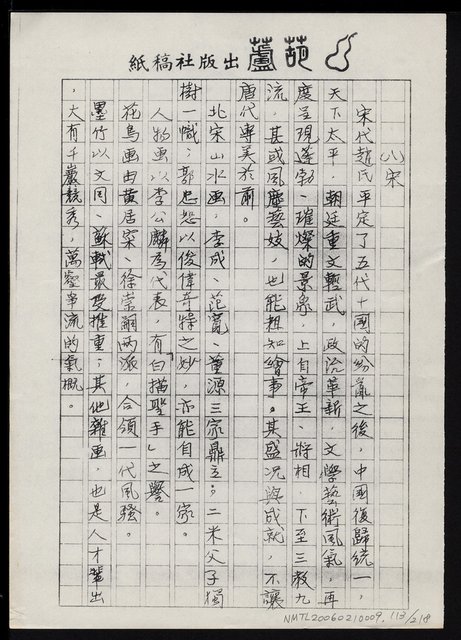 葫蘆出版社稿紙
(八)宋
宋代趙氏平定了五代十國的紛亂之後，中國復歸統一，
天下太平，朝廷重文輕武，政治革新，文學藝術風氣，再
度呈現蓬勃、璀燦的景象，上自帝王、將相，下至三教九
流，甚或風塵藝妓，也能粗知繪事。其盛況與成就，不讓
唐代專美於前。
北宋山水画，李成、范寬、董源三家鼎立；二米父子獨
樹一幟；郭忠恕以俊偉奇特之妙，亦能自成一家。
人物画以李公麟為代表，有「白描聖手」之譽。
花鳥画由黄居寀、徐崇嗣兩派，合領一代風騷。
墨竹以文同、蘇軾最受推重；其他雜画，也是人才輩出
，大有千巖競秀，萬壑爭流的氣概。
NMTL20060210009, 113/218